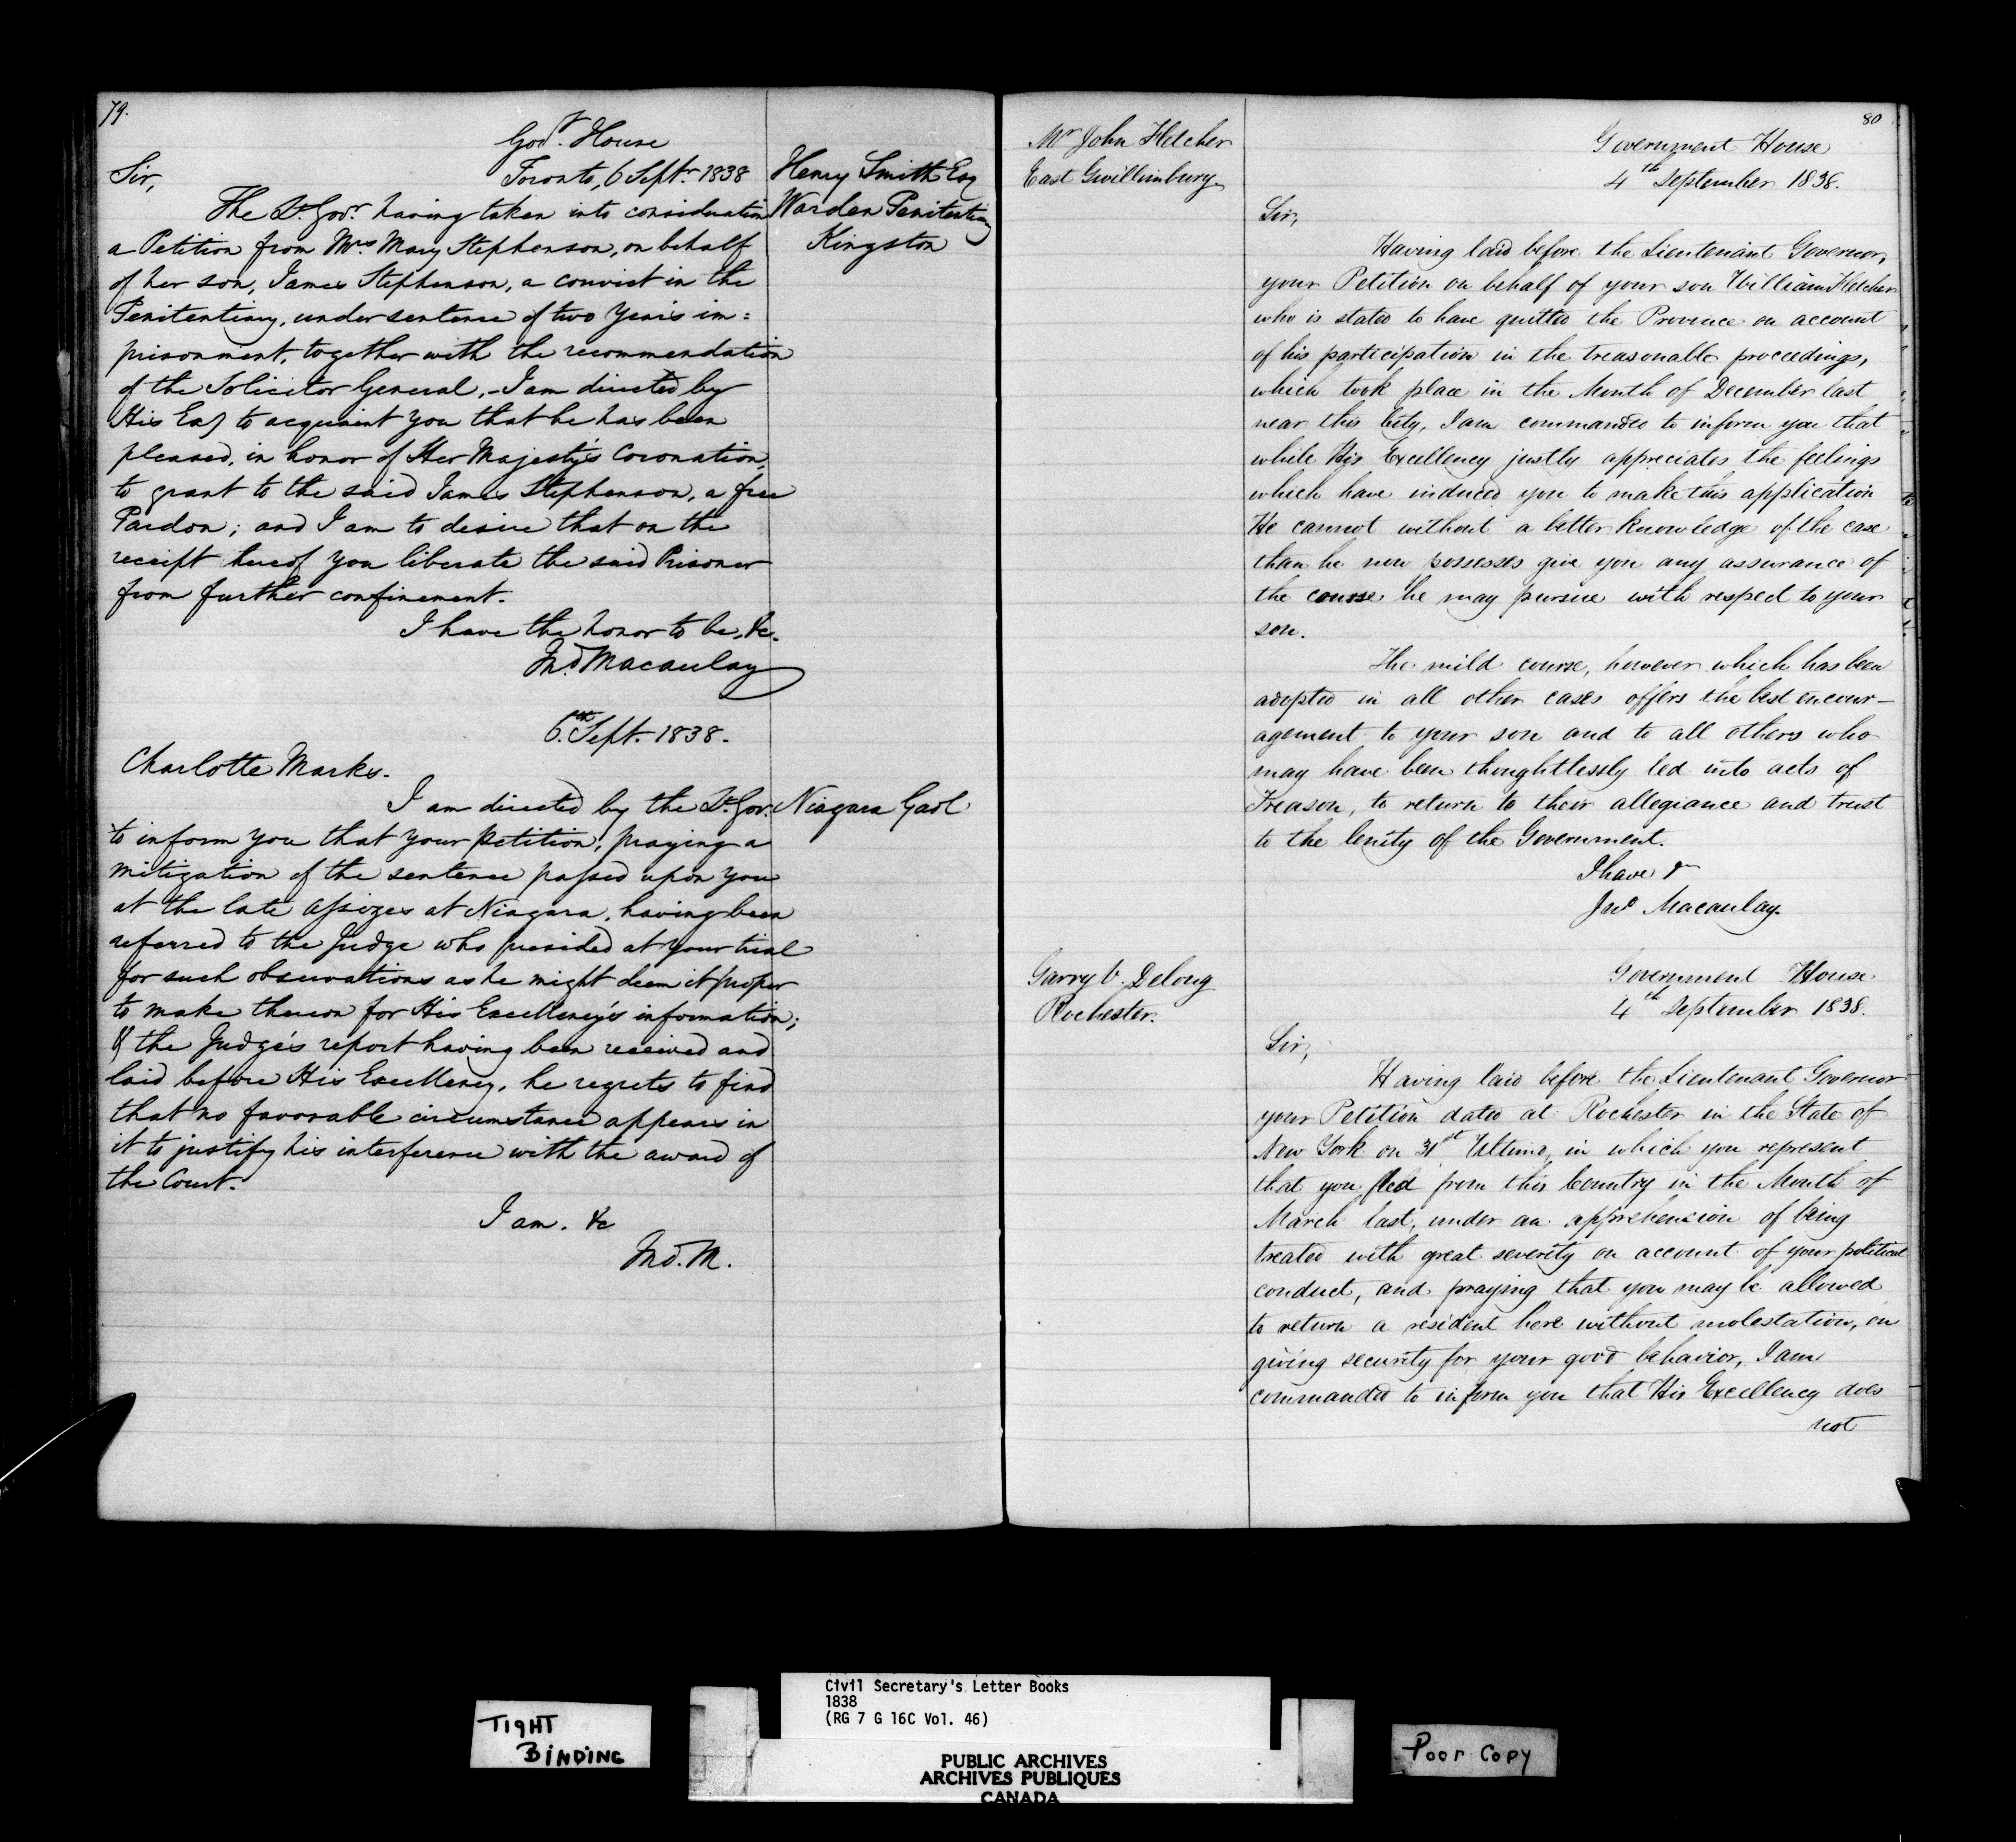 79.
Govt. House
Toronto, 6 Septr. 1838
Henry Smith Esq
Warden Penitentiary
Kingston
Sir,
The Lt. Govr. having taken into consideration
a Petition from Mrs. Mary Stephenson, on behalf
of her son, James Stephenson, a convict in the
Penitentiary, under sentence of two Years im=
prisonment, together with the recommendation
of the Solicitor General, - I am directed by
His Exy to acquaint you that he has been
pleased, in honor of Her Majesty's Coronation,
to grant to the said James Stephenson, a free
Pardon; and I am to desire that on the
receipt hereof you liberate the said Prisoner
from further confinement.
I have the honor to be, &c.
Jno. Macaulay
6th. Sept. 1838.
Charlotte Marks.
Niagara Gaol
I am directed by the Lt. Gov.
to inform you that your petition, praying a
mitigation of the sentence passed upon you
at the late Assizes at Niagara, having been
referred to the Judge who presided at your trial
for such observations as he might deem it proper
to make thereon for His Excellency's information;
& the Judge's report having been received and
laid before His Excellency, he regrets to find
that no favorable circumstance appears in
it to justify his interference with the award of
the Court.
I am. &c
Jno. M.
80
Mr John Fletcher
East Gwillimbury
Government House
4th September 1838.
Sir,
Having laid before the Lieutenant Governor,
your Petition on behalf of your son William Fletcher
who is stated to have quitted the Province on account
of his participation in the treasonable proceedings,
which took place in the Month of December last
near this City, I am commanded to inform you that
while His Excellency justly appreciates the feelings
which have induced you to make this application
He cannot without a better knowledge of the case
than he now possesses give you any assurance of
the course he may pursue with respect to your
son.
The mild course, however which has been
adopted in all other cases offers the best encour-
agement to your son and to all others who
may have been thoughtlessly led into acts of
Treason, to return to their allegiance and trust
to the lenity of the Government.
I have &
Jno Macaulay.
Garry V. Delong
Rochester.
Government House
4th September 1838.
Sir,
Having laid before the Lieutenant Governor
your Petition dated at Rochester in the State of
New York on 31st Ultimo, in which you represent
that you fled from this Country in the Month of
March last, under an apprehension of being
treated with great severity on account of your political
conduct, and praying that you may be allowed
to return a resident here without molestation, on
giving security for your good behavior, I am
commanded to inform you that His Excellency does
not
TIGHT
BINDING
Civil Secretary's Letter Books
1838
(RG 7 G 16C Vol. 46)
PUBLIC ARCHIVES
ARCHIVES PUBLIQUES
CANADA
Poor Copy